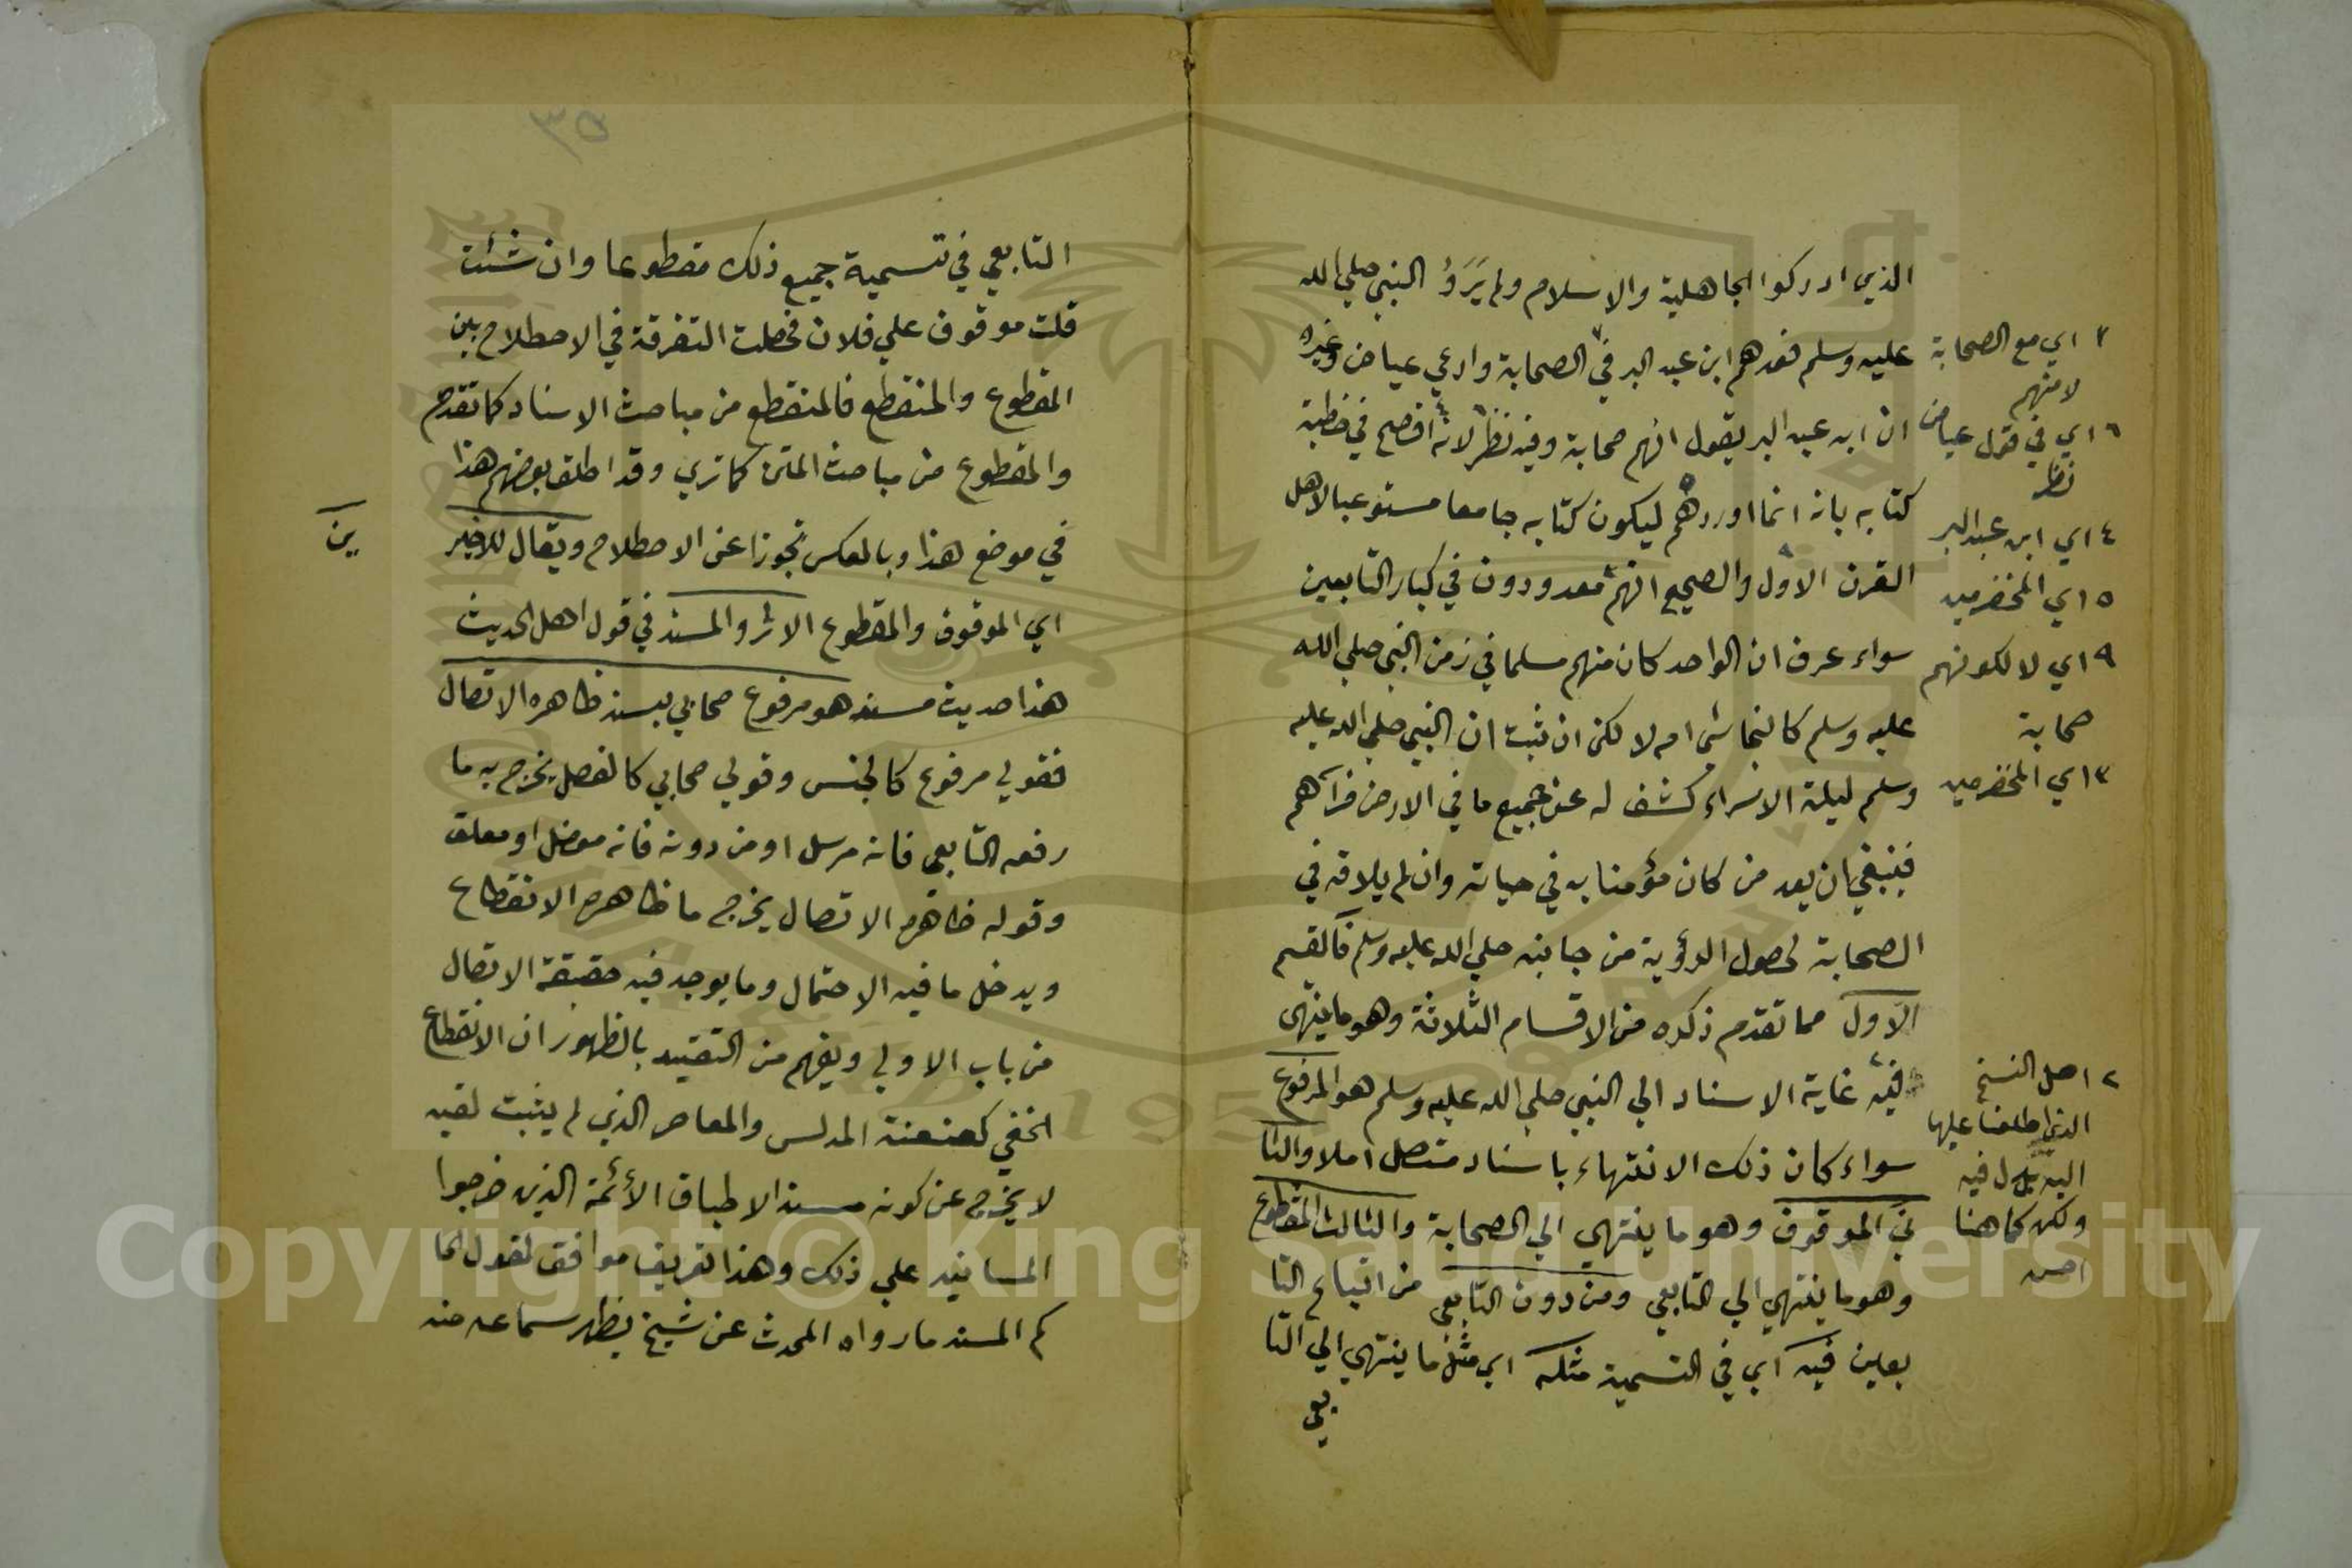 الذي ادركوا الجاهلية والاسلام ولم يَرَوُ النبي صلي الله
عليه وسلم فعدهم ابن عبد البر في الصحابة وادعي عياض وغيره
ان ابن عبد البر يقول انهم صحابة وفيه نظر لانه افصح في خطبة
كتابه بانه انما اوردهم ليكون كتابه جامعا مستوعبا لاهل
القرن الاول والصحيح انهم معدودون في كبار التابعين
سواء عرف ان الواحد كان منهم مسلما في زمن النبي صلي الله
عليه وسلم كالنجاشي ام لا لكن ان ثبت ان النبي صلي الله عليه
وسلم ليلة الاسراء كشف له عن جميع ما في الارض فرآهم
فينبغي ان يعد من كان مؤمنا به في حياته وان لم يلاقه في
الصحابة لحصول الرؤية من جانبه صلي الله عليه وسلم فالقسم
الاول مما تقدم ذكره من الاقسام الثلاثة وهو ما ينتهى
فيه غاية الاسناد الي النبي صلي الله عليه وسلم هو المرفوع
سواء كان ذلك الانتهاء باسناد متصل املا والثا
ني الموقوف وهو ما ينتهي الي الصحابة والثالث المقطوع
وهو ما ينتهي الي التابعي ومن دون التابعي من اتباع التا
بعين فيه اي في التسمية مثله اي مثل ما ينتهي الي التا
بعي
٢ اي مع الصحابة
لا منهم
٦ اي في قول عياض
نظر
٤ اي ابن عبد البر
٥ اي المخضرمين
٩ اي لا لكونهم
صحابة
٣ اي المخضرمين
٢ اصل النسخ
الذي اطلعنا عليها
اليه بدل فيه
ولكن كما هنا
احسن
٣٥
التابعي في تسمية جميع ذلك مقطوعا وان شئت
قلت موقوف علي فلان فحصلت التفرقة في الاصطلاح بين
المقطوع والمنقطع فالمنقطع من مباحث الاسناد كما تقدم
والمقطوع من مباحث المتن كما تري وقد اطلق بعضهم هذا
في موضع هذا وبالعكس تجوزا عن الاصطلاح ويقال للاخير
ين
اي الموقوف والمقطوع الاثر والمسند في قول اهل الحديث
هذا حديث مسند هو مرفوع صحابي بسند ظاهره الاتصال
فقولي مرفوع كالجنس وقولي صحابي كالفصل يخرج به ما
رفعه التابعي فانه مرسل او من دونه فانه معضل او معلق
وقوله ظاهره الاتصال يخرج ما ظاهره الانقطاع
ويدخل ما فيه الاحتمال وما يوجد فيه حقيقة الاتصال
من باب الاولي ويفهم من التقييد بالظهور ان الانقطاع
الخفي كعنعنة المدلس والمعاصر الذي لم يثبت لقيه
لا يخرج عن كونه مسند الاطباق الأئمة الذين خرجوا
المسانيد علي ذلك وهذا تعريف موافق لقول الحا
كم المسند ما رواه المحدث عن شيخ يظهر سماعه منه
Copyright © King Saud University
1957